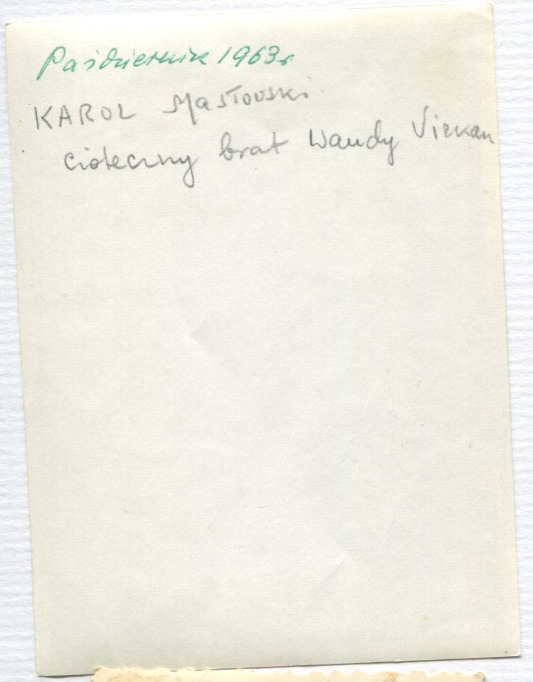 Październik 1963r
KAROL Masłowski
cioteczny brat Wandy